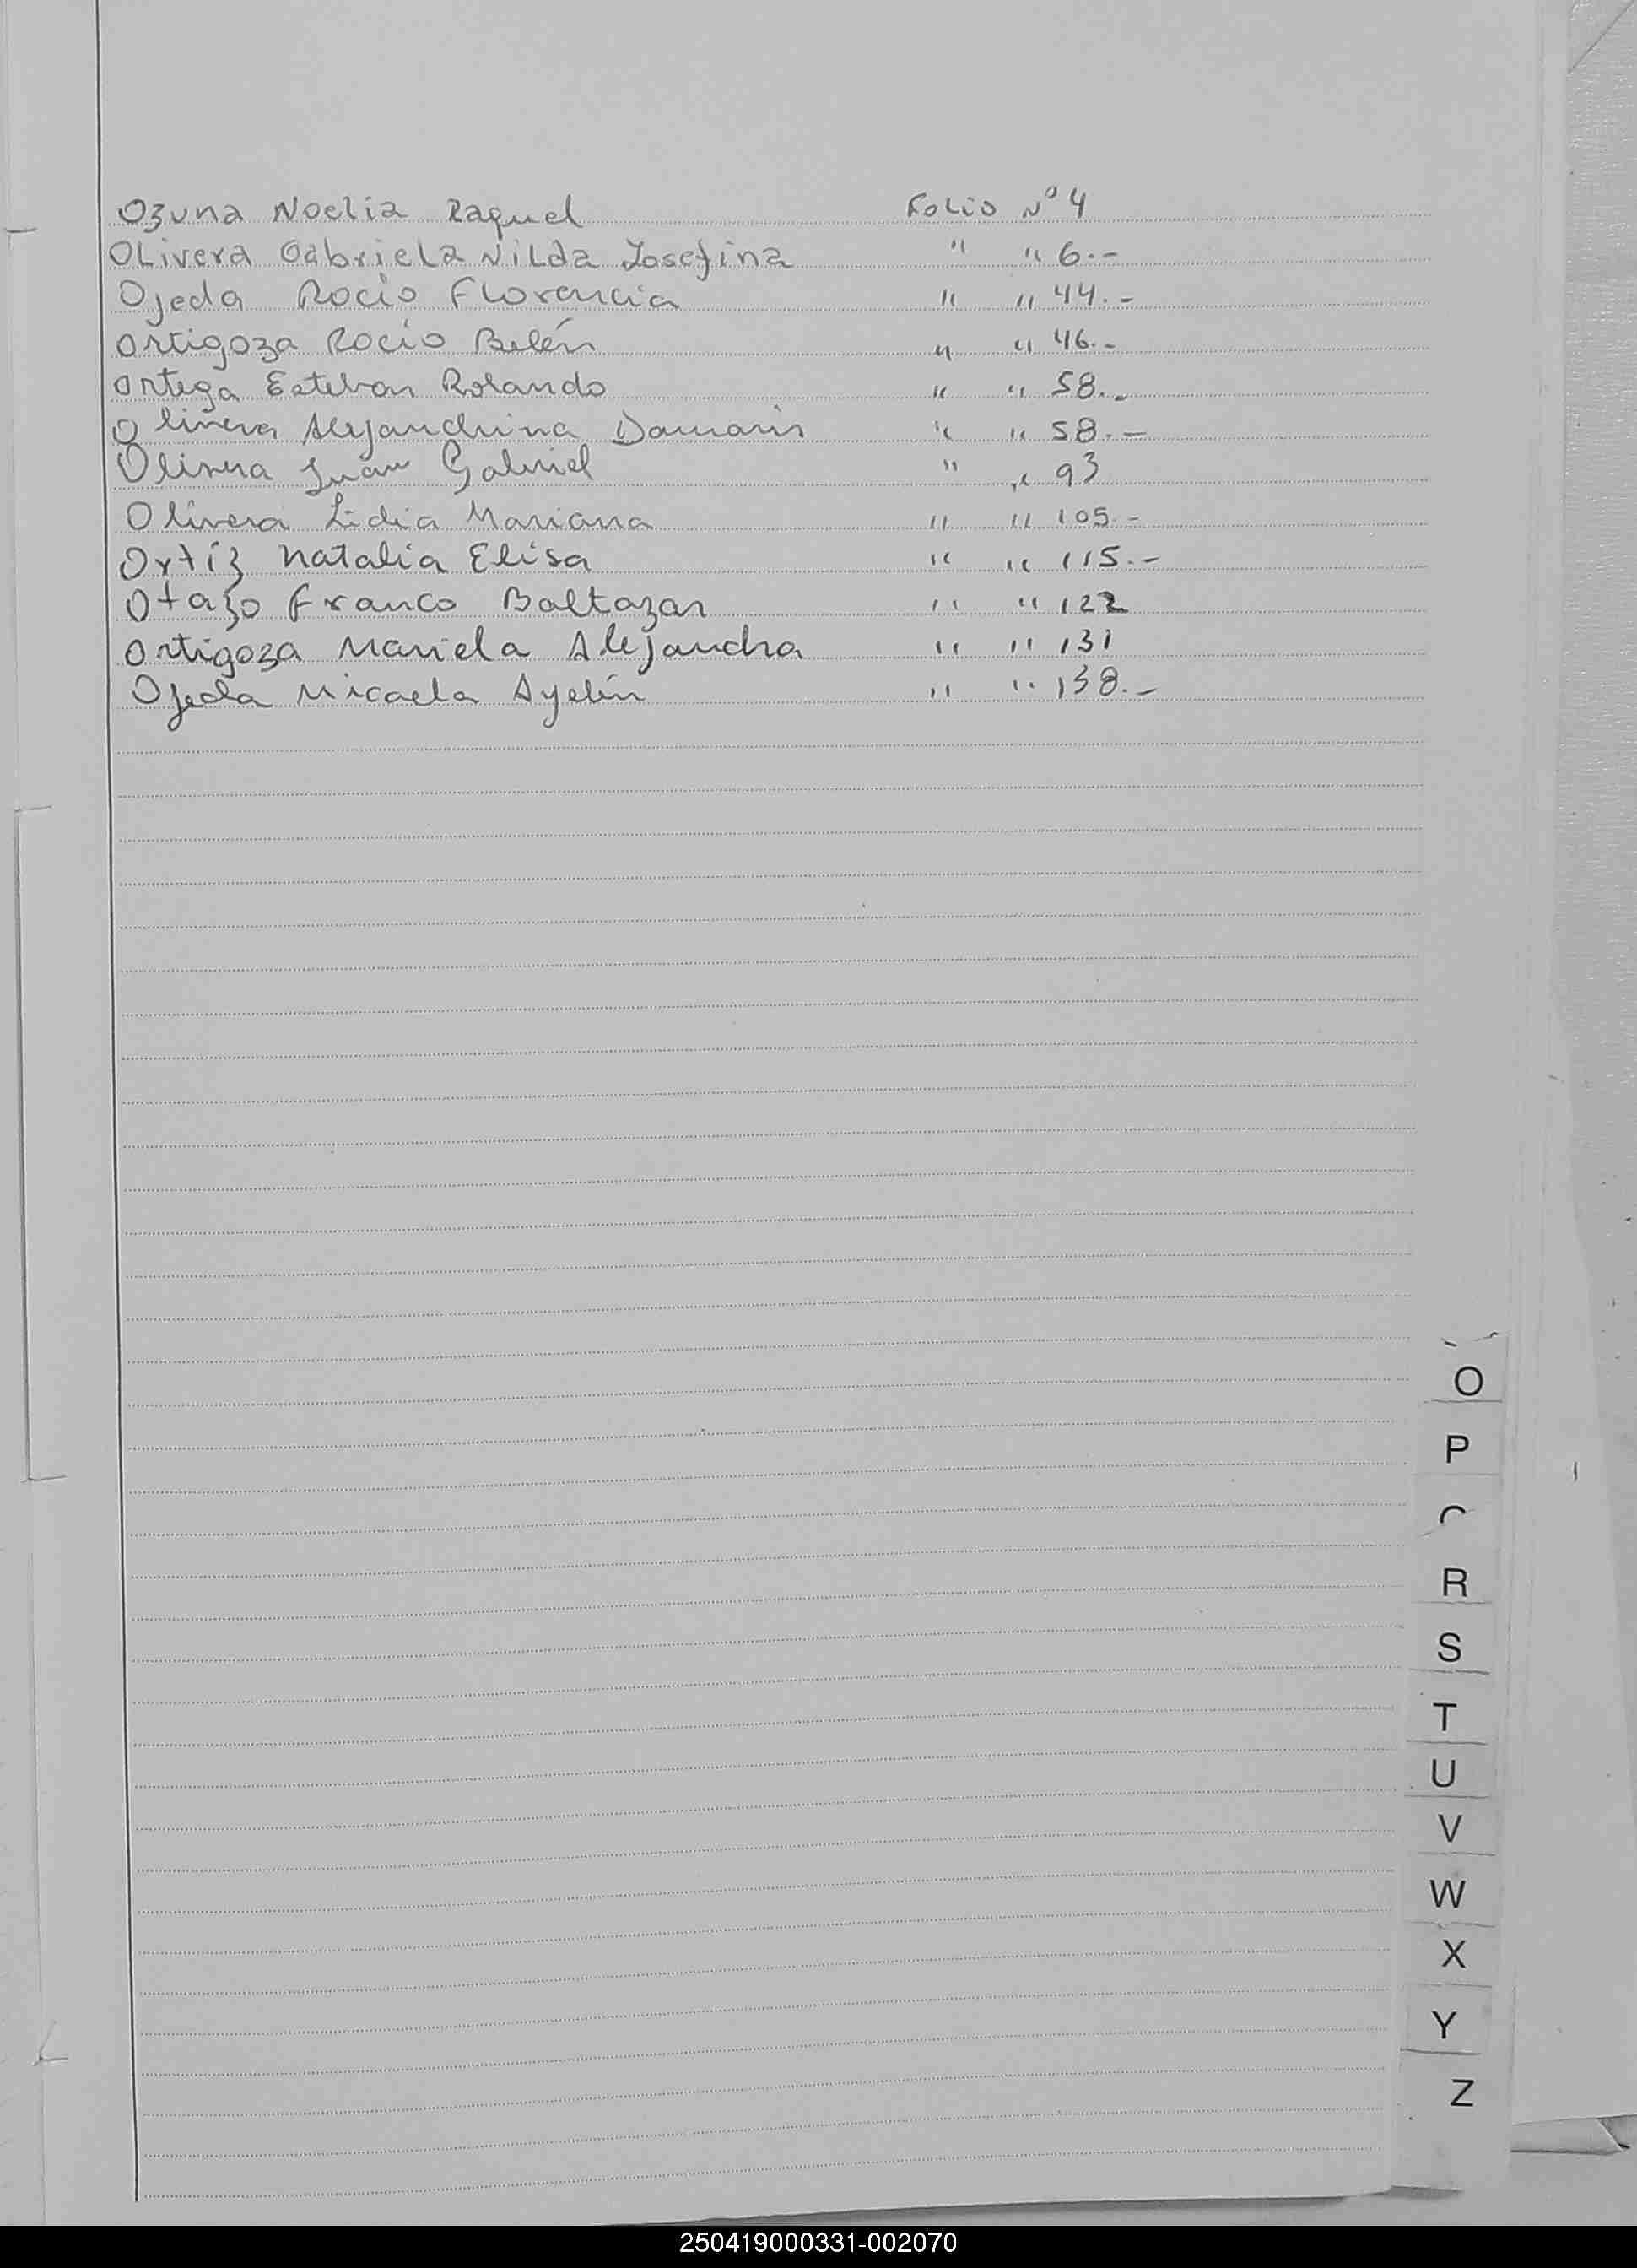 Ozuna Noelia Raquel Folio Nº 4
Olivera Gabriela Nilda Josefina " " 6.-
Ojeda Rocio Florencia " " 44.-
Ortigoza Rocío Belén " " 46.-
Ortega Esteban Rolando " " 58.-
Olivera Alejandrina Damaris " " 58.-
Olivera Juan Gabriel " " 93
Olivera Lidia Mariana " " 105.-
Ortíz Natalia Elisa " " 115.-
Otazo Franco Baltazar " " 122
Ortigoza Mariela Alejandra " " 131
Ojeda Micaela Ayelén " " 138.-
O
P
R
S
T
U
V
W
X
Y
Z
250419000331-002070